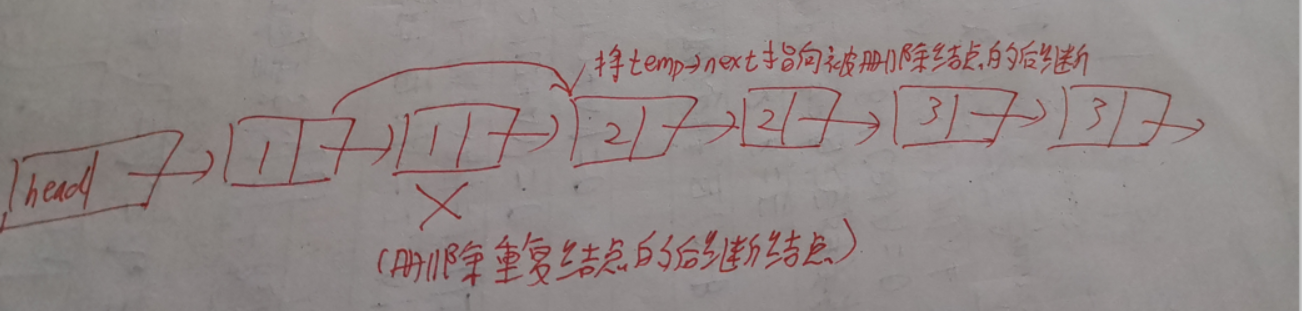 将temp→next指向被删除结点的后继断
head 1 1 2 2 3 3
(删除重复结点的后继断结点)